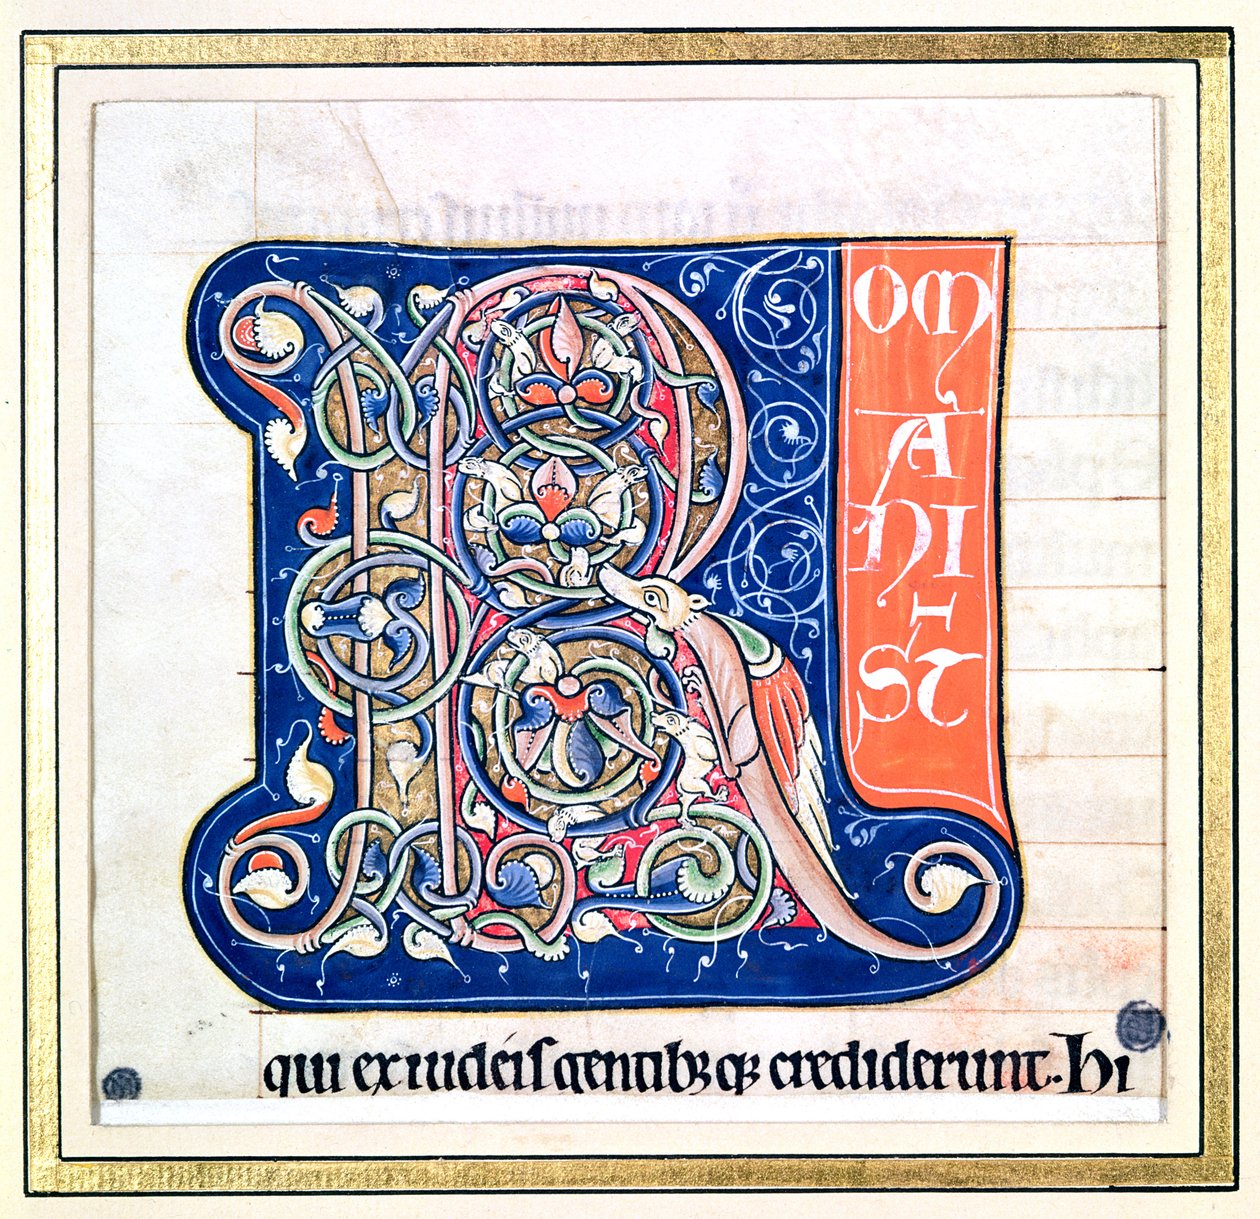 R
OM
A
NI
ST
qui ex iudéiſ gentibꝫ qꝫ crediderunt. Hi